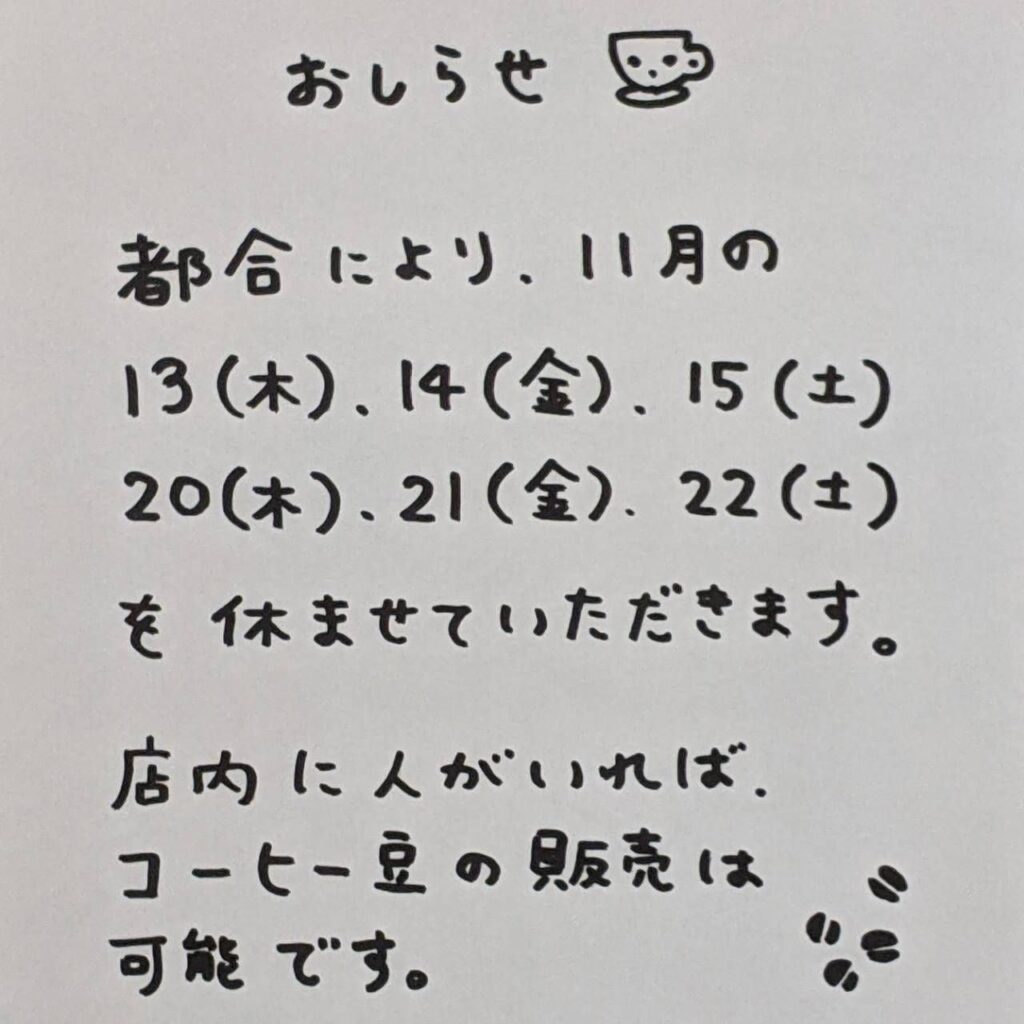 おしらせ
都合により、11月の
13(木)、14(金)、15(土)
20(木)、21(金)、22(土)
を休ませていただきます。
店内に人がいれば、
コーヒー豆の販売は
可能です。